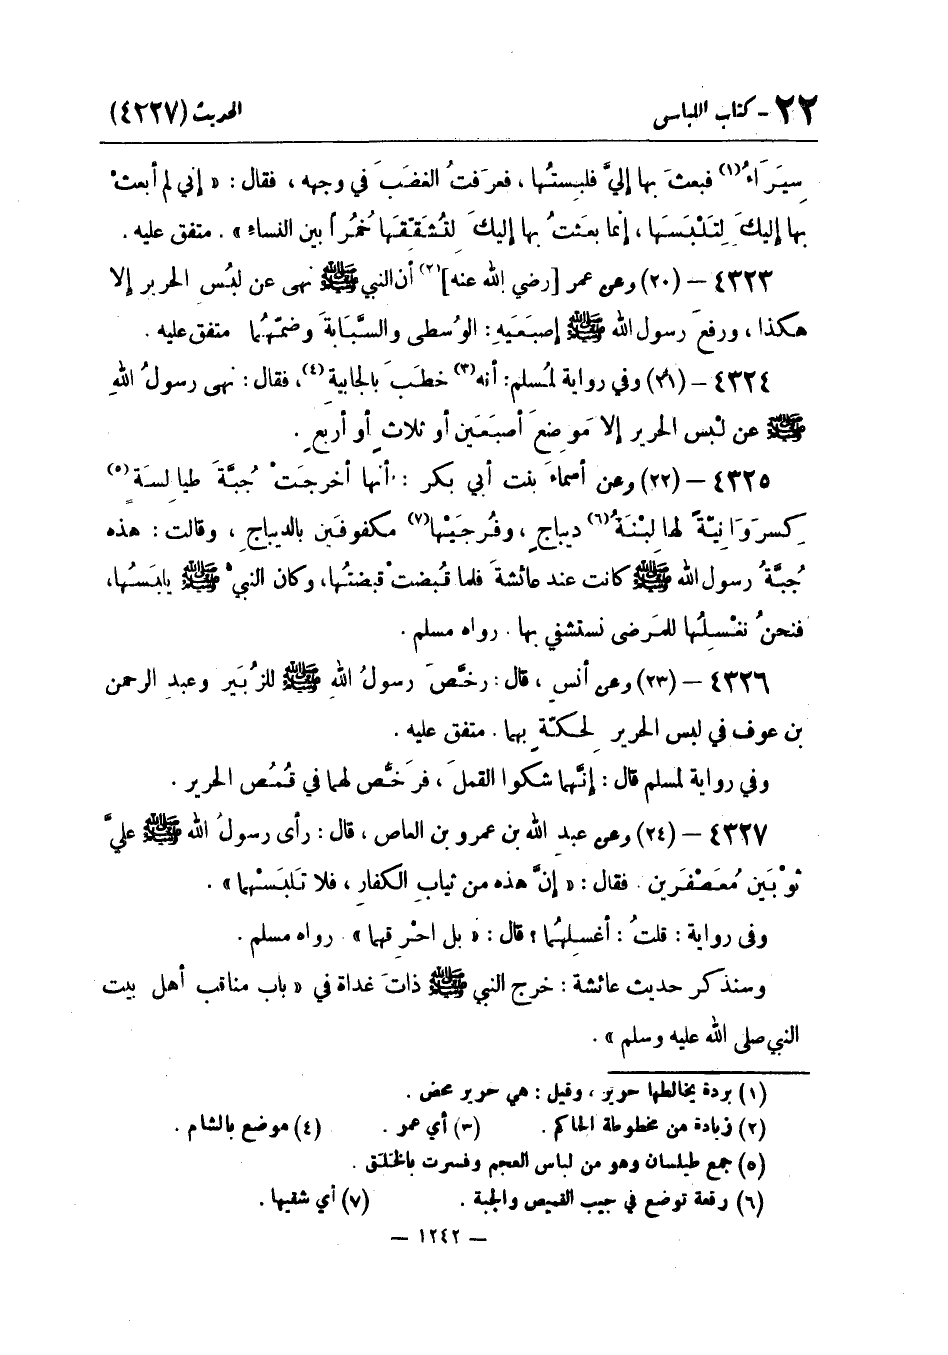 ٢٢ - كتاب اللباس الحديث (٤٢٢٧)
سِيَرَاءُ(١) فبعثَ بها إليَّ فلبِستُها ، فعرَفتُ الغضَبَ في وجهِه ، فقال : « إني لم أبعثْ
بها إليكَ لِتَلْبَسَها ، إنما بعَثتُ بها إليكَ لِتُشَقِّقَها خُمُراً بين النساءِ » . متفق عليه .
٤٣٢٣ – (٢٠) وعن عمر [رضي الله عنه](٢) أن النبي ﷺ نهى عن لبُسِ الحريرِ إلا
هكذا ، ورفعَ رسولُ الله ﷺ إصبَعَيهِ : الوُسطى والسَّبَّابةَ وضمَّهُما متفق عليه .
٤٣٢٤ – (٢١) وفي رواية لمُسلم : أنه(٣) خطَبَ بالجابيةِ(٤)، فقال : نهى رسولُ اللهِ
ﷺ عن لبْسِ الحريرِ إلا مَوضِعَ أصبَعَينِ أو ثلاثٍ أو أربعٍ .
٤٣٢٥ – (٢٢) وعن أسماءَ بنت أبي بكر : أنها أخرجَتْ جُبَّةَ طيالِسَةٍ(٥)
كِسرَوَانِيّةً لها لِبْنَةُ(٦) ديباجٍ ، وفُرجَيْها(٧) مكفوفَينِ بالديباجِ ، وقالت : هذه
جُبَّةُ رسول الله ﷺ كانت عند عائشةَ فلما قُبضتْ قبضتُها، وكان النبيُّ ﷺ يلبَسُها،
فنحنُ نغْسِلُها للمَرضى نستشفي بها . رواه مسلم .
٤٣٢٦ – (٢٣) وعن أنسٍ ، قال : رخَّصَ رسولُ اللهِ ﷺ للزُّبَيرِ وعبدِ الرحمن
بن عوف في لبسِ الحريرِ لحِكّةٍ بهما . متفق عليه .
وفي رواية لمسلم قال : إنَّهما شكَوا القملَ ، فرَخَّص لهما في قُمُصِ الحريرِ .
٤٣٢٧ – (٢٤) وعن عبدِ الله بن عمرو بن العاص ، قال : رأى رسولُ الله ﷺ عليَّ
ثوْبَينِ مُعَصْفَرينِ . فقال : « إنَّ هذه من ثيابِ الكفارِ ، فلا تَلبَسْهما » .
وفي رواية : قلتُ : أغسلِهُما ؟ قال : « بل احْرِقهما » . رواه مسلم .
وسنذكر حديث عائشة : خرج النبي ﷺ ذاتَ غداة في « باب مناقب أهل بيت
النبي صلى الله عليه وسلم » .
(١) بردة يخالطها حرير ، وقيل : هي حرير محض .
(٢) زيادة من مخطوطة الحاكم . (٣) أي عمر . (٤) موضع بالشام .
(٥) جمع طيلسان وهو من لباس العجم وفسرت بالخَلَق .
(٦) رقعة توضع في جيب القميص والجبة . (٧) أي شقيها .
— ١٢٤٢ —